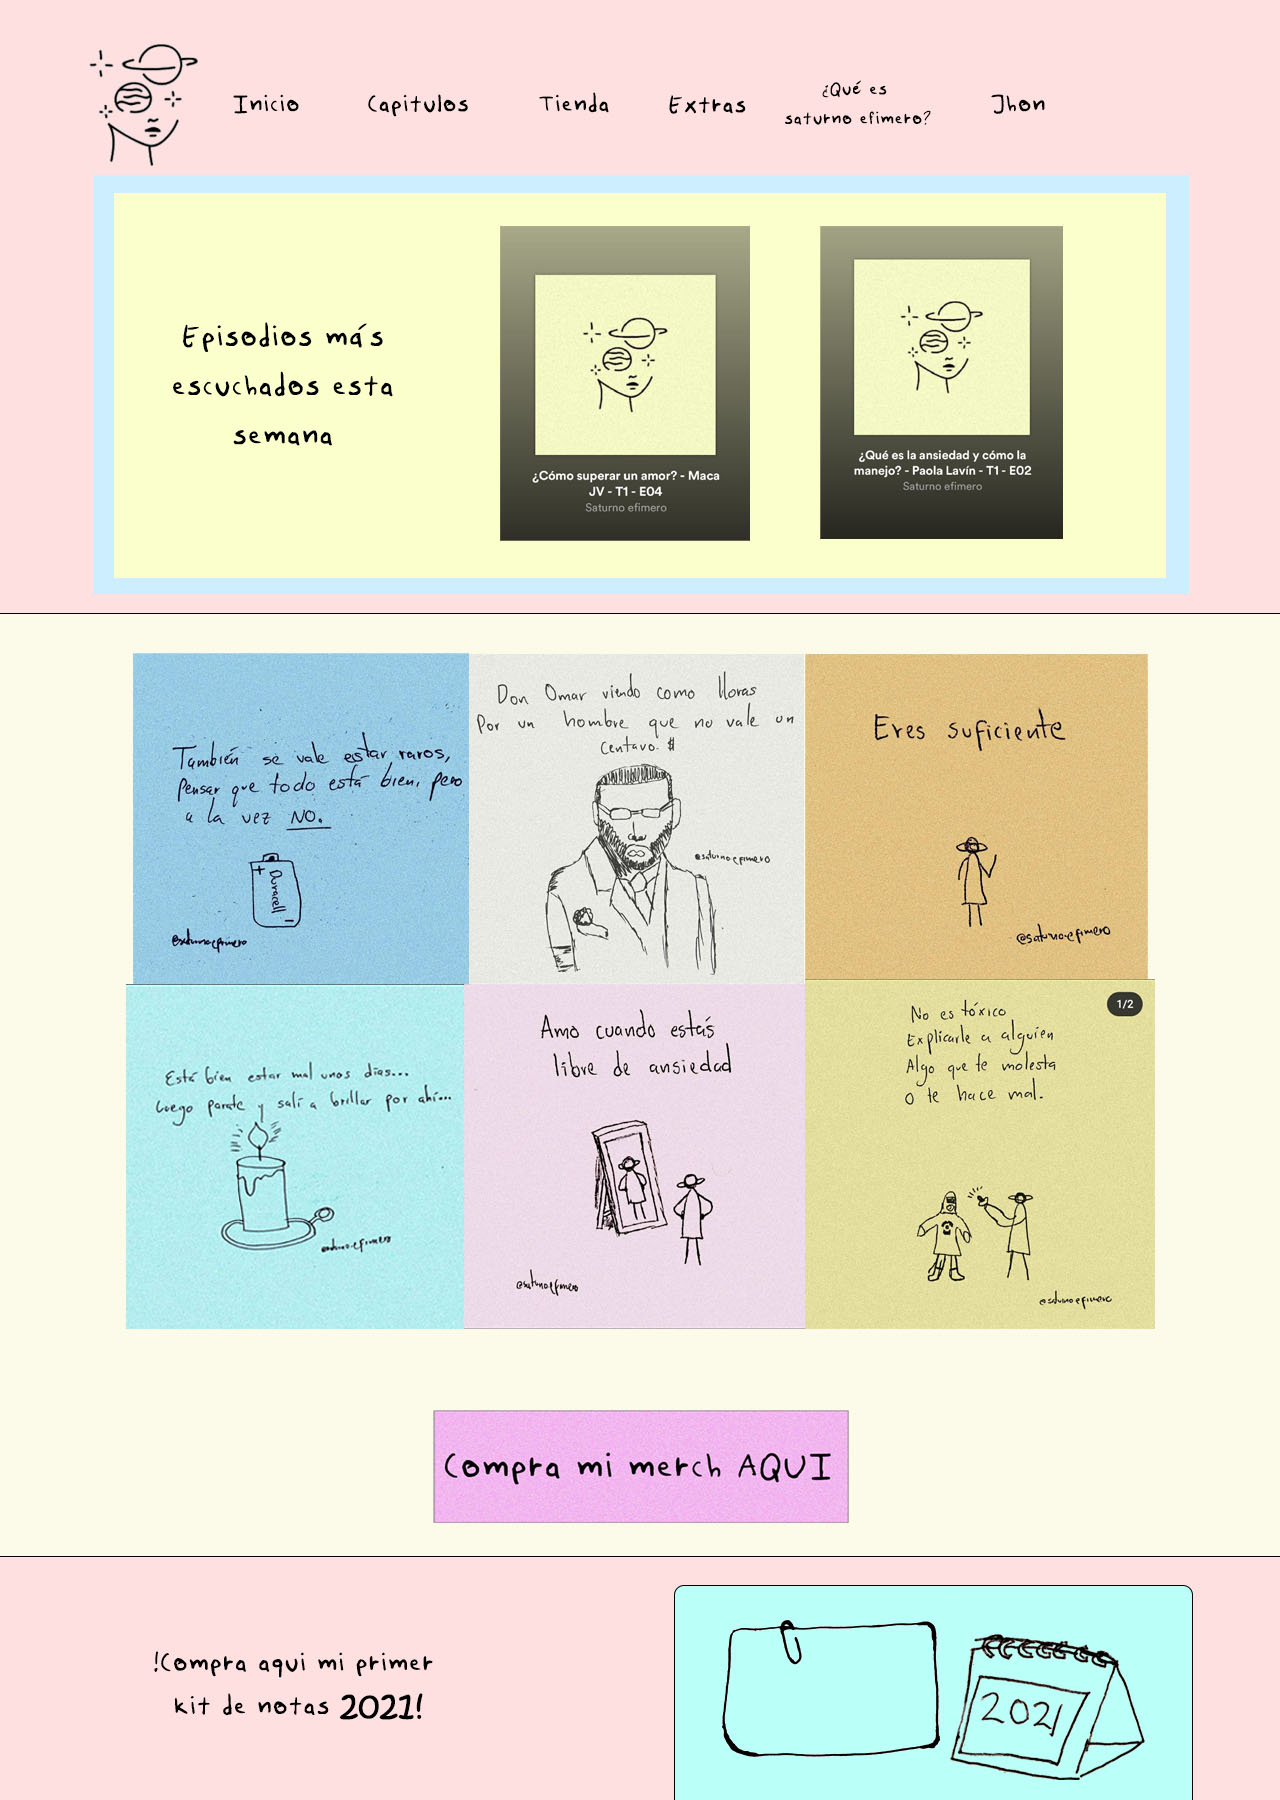 Inicio
Capitulos
Tienda
Extras
¿Qué es
saturno efimero?
Jhon
Episodios más
escuchados esta
semana
¿Cómo superar un amor? - Maca
JV - T1 - E04
Saturno efimero
¿Qué es la ansiedad y cómo la
manejo? - Paola Lavín - T1 - E02
Saturno efimero
También se vale estar raros,
Pensar que todo está bien, pero
a la vez NO.
+
Duracell
-
@saturnoefimero
Don Omar viendo como lloras
Por un hombre que no vale un
Centavo. $
@saturnoefimero
Eres suficiente
@saturnoefimero
Está bien estar mal unos días...
Luego parate y salí a brillar por ahí...
@saturnoefimero
Amo cuando estás
libre de ansiedad
@saturnoefimero
1/2
No es tóxico
Explicarle a alguien
Algo que te molesta
O te hace mal.
@saturnoefimero
Compra mi merch AQUI
!Compra aqui mi primer
kit de notas 2021!
2021